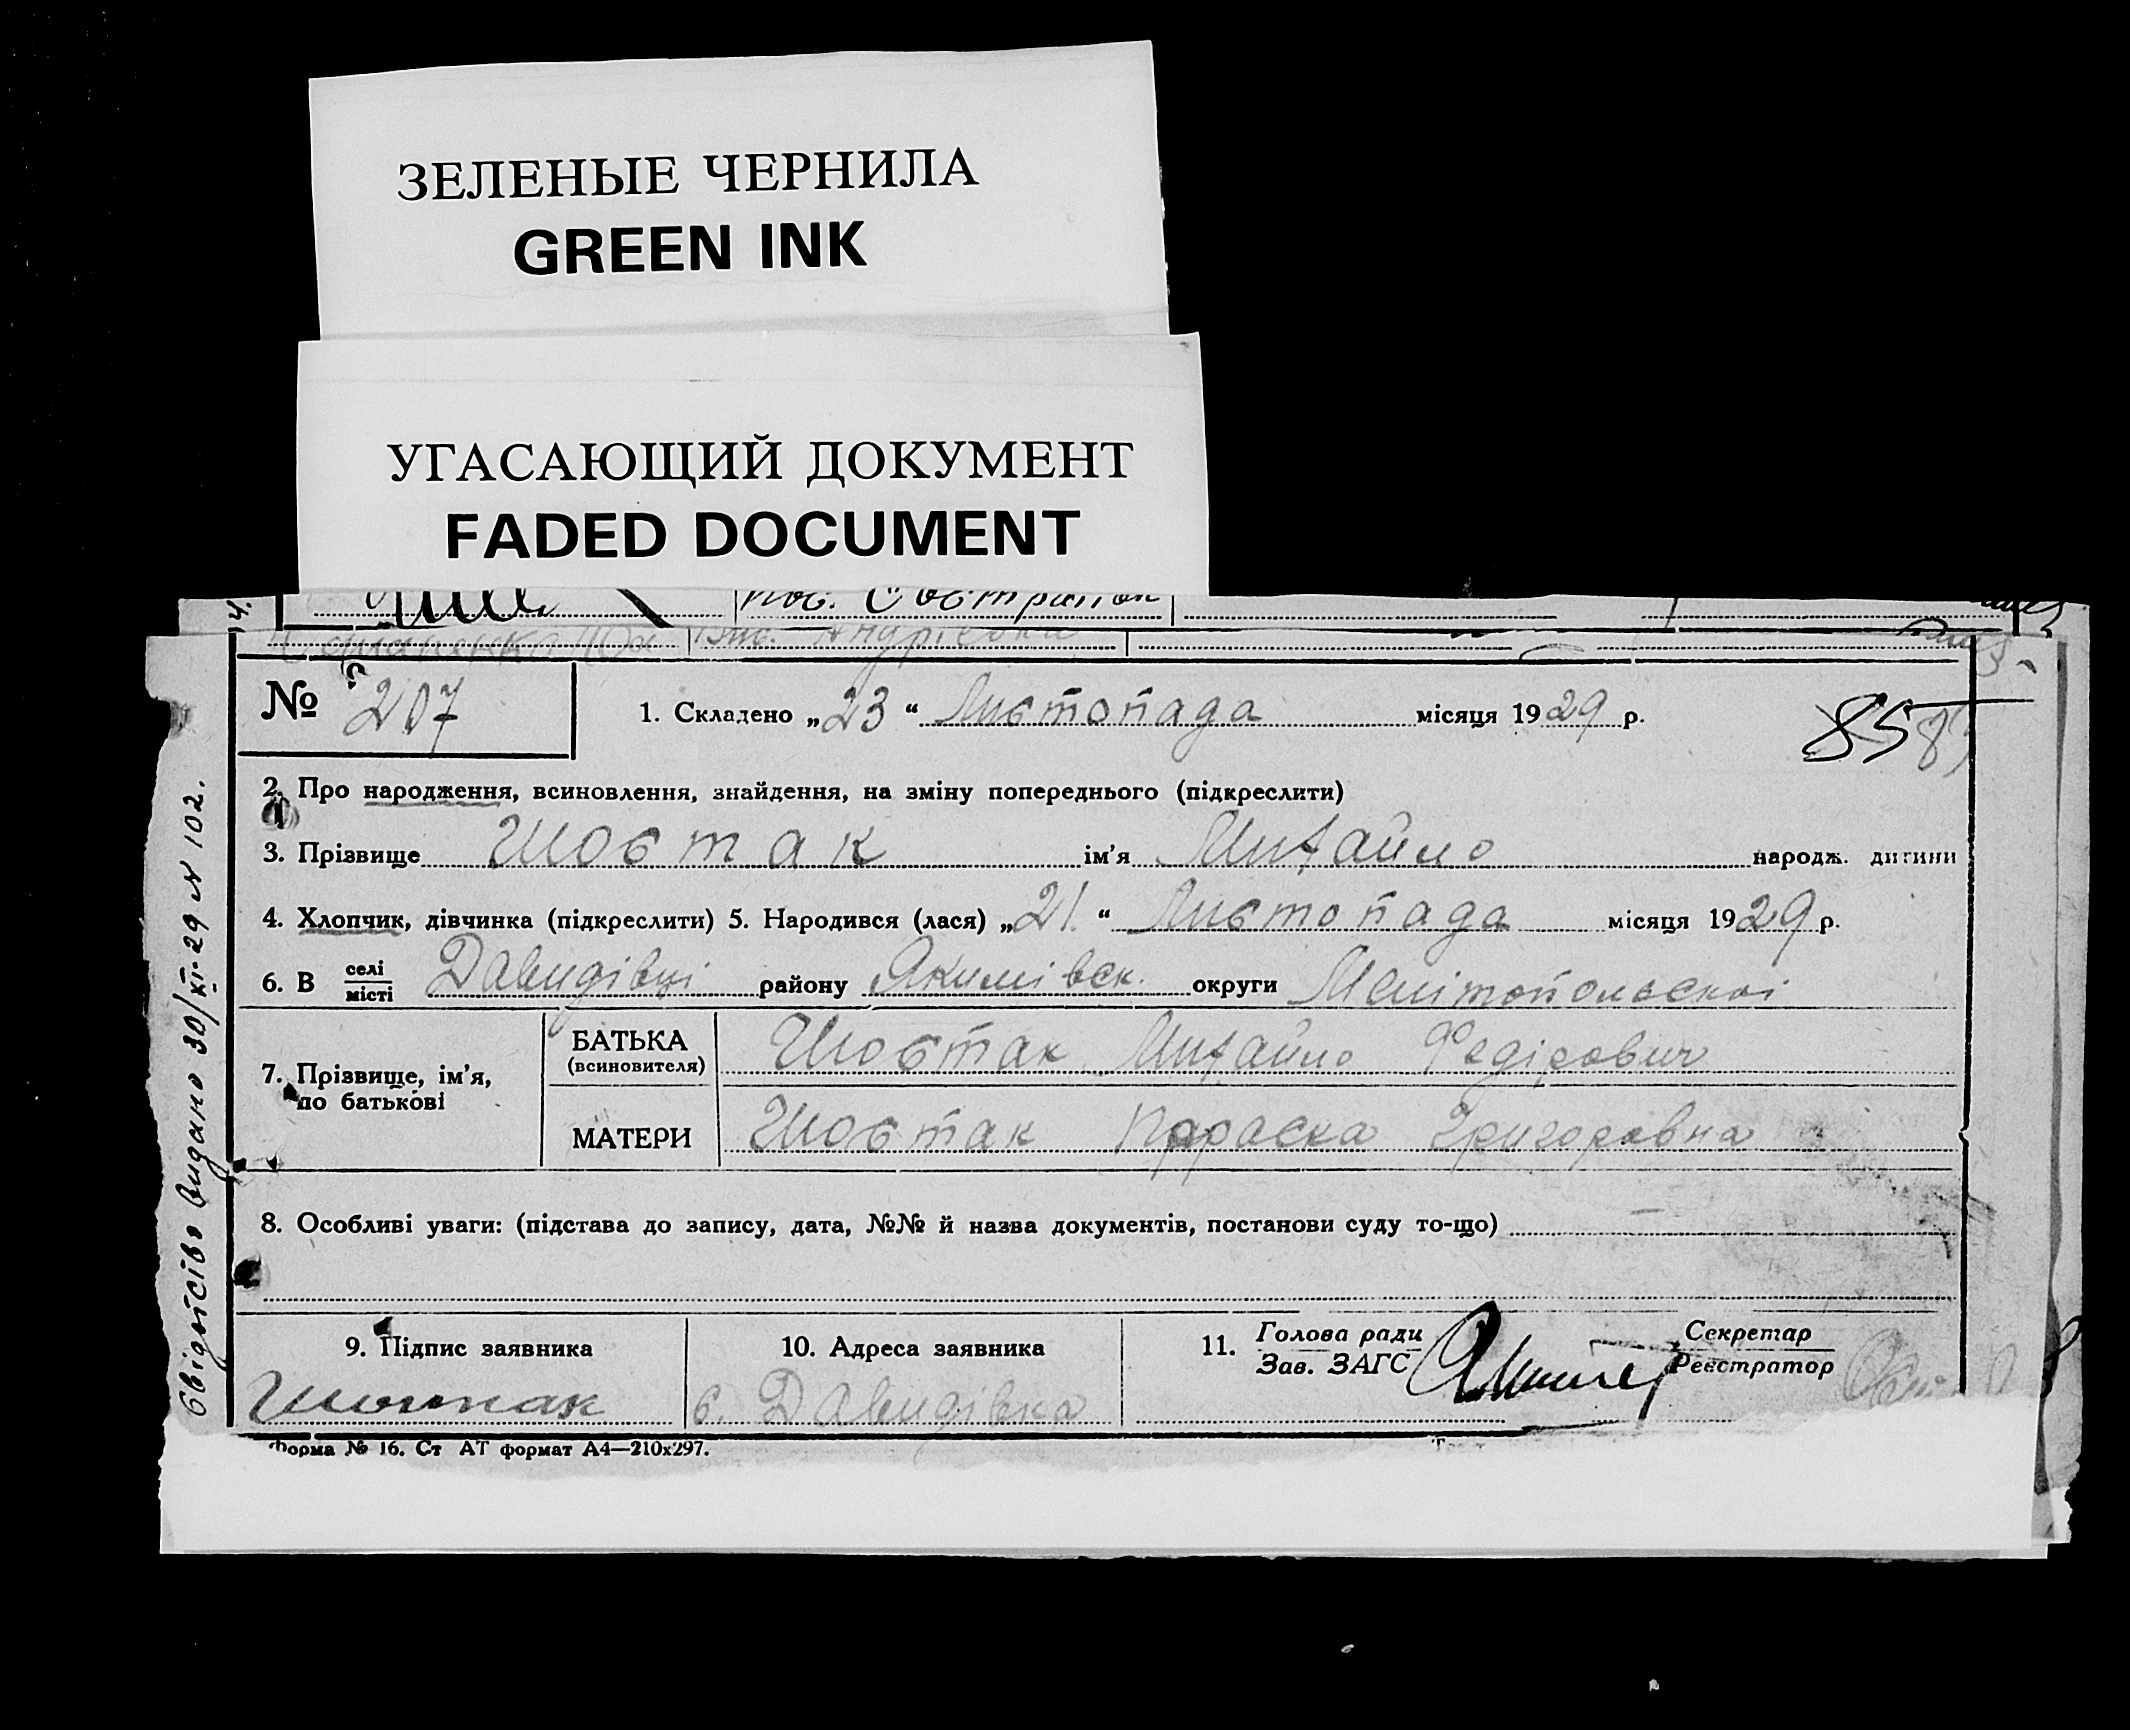 ЗЕЛЕНЫЕ ЧЕРНИЛА
GREEN INK
УГАСАЮЩИЙ ДОКУМЕНТ
FADED DOCUMENT
№ 207
1. Складено „23“ Листопада місяця 1929 р.
85
2. Про народження, всиновлення, знайдення, на зміну попереднього (підкреслити)
3. Прізвище Шостак ім'я Михайло народж. дитини
4. Хлопчик, дівчинка (підкреслити) 5. Народився (лася) „21“ Листопада місяця 1929 р.
6. В селі місті Давидівці району Якимівськ. округи Мелітопольскої
7. Прізвище, ім'я, по батькові
БАТЬКА (всиновителя) Шостак Михайло Федірович
МАТЕРИ Шостак Параска Григоровна
8. Особливі уваги: (підстава до запису, дата, №№ й назва документів, постанови суду то-що) —
9. Підпис заявника
Шостак
10. Адреса заявника
с. Давидівка
11. Голова ради Зав. ЗАГС
Секретар Реєстратор
Форма № 16. Ст АТ формат А4—210х297.
Свідотсво видано 30/XI-29 N 102.